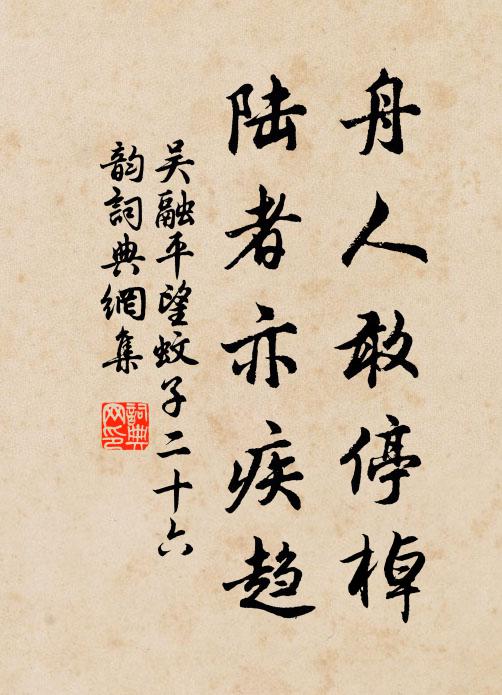 舟人敢停棹
陆者亦疾趋
吴融平望蚊子二十六
韵詞典網集
詞典网印